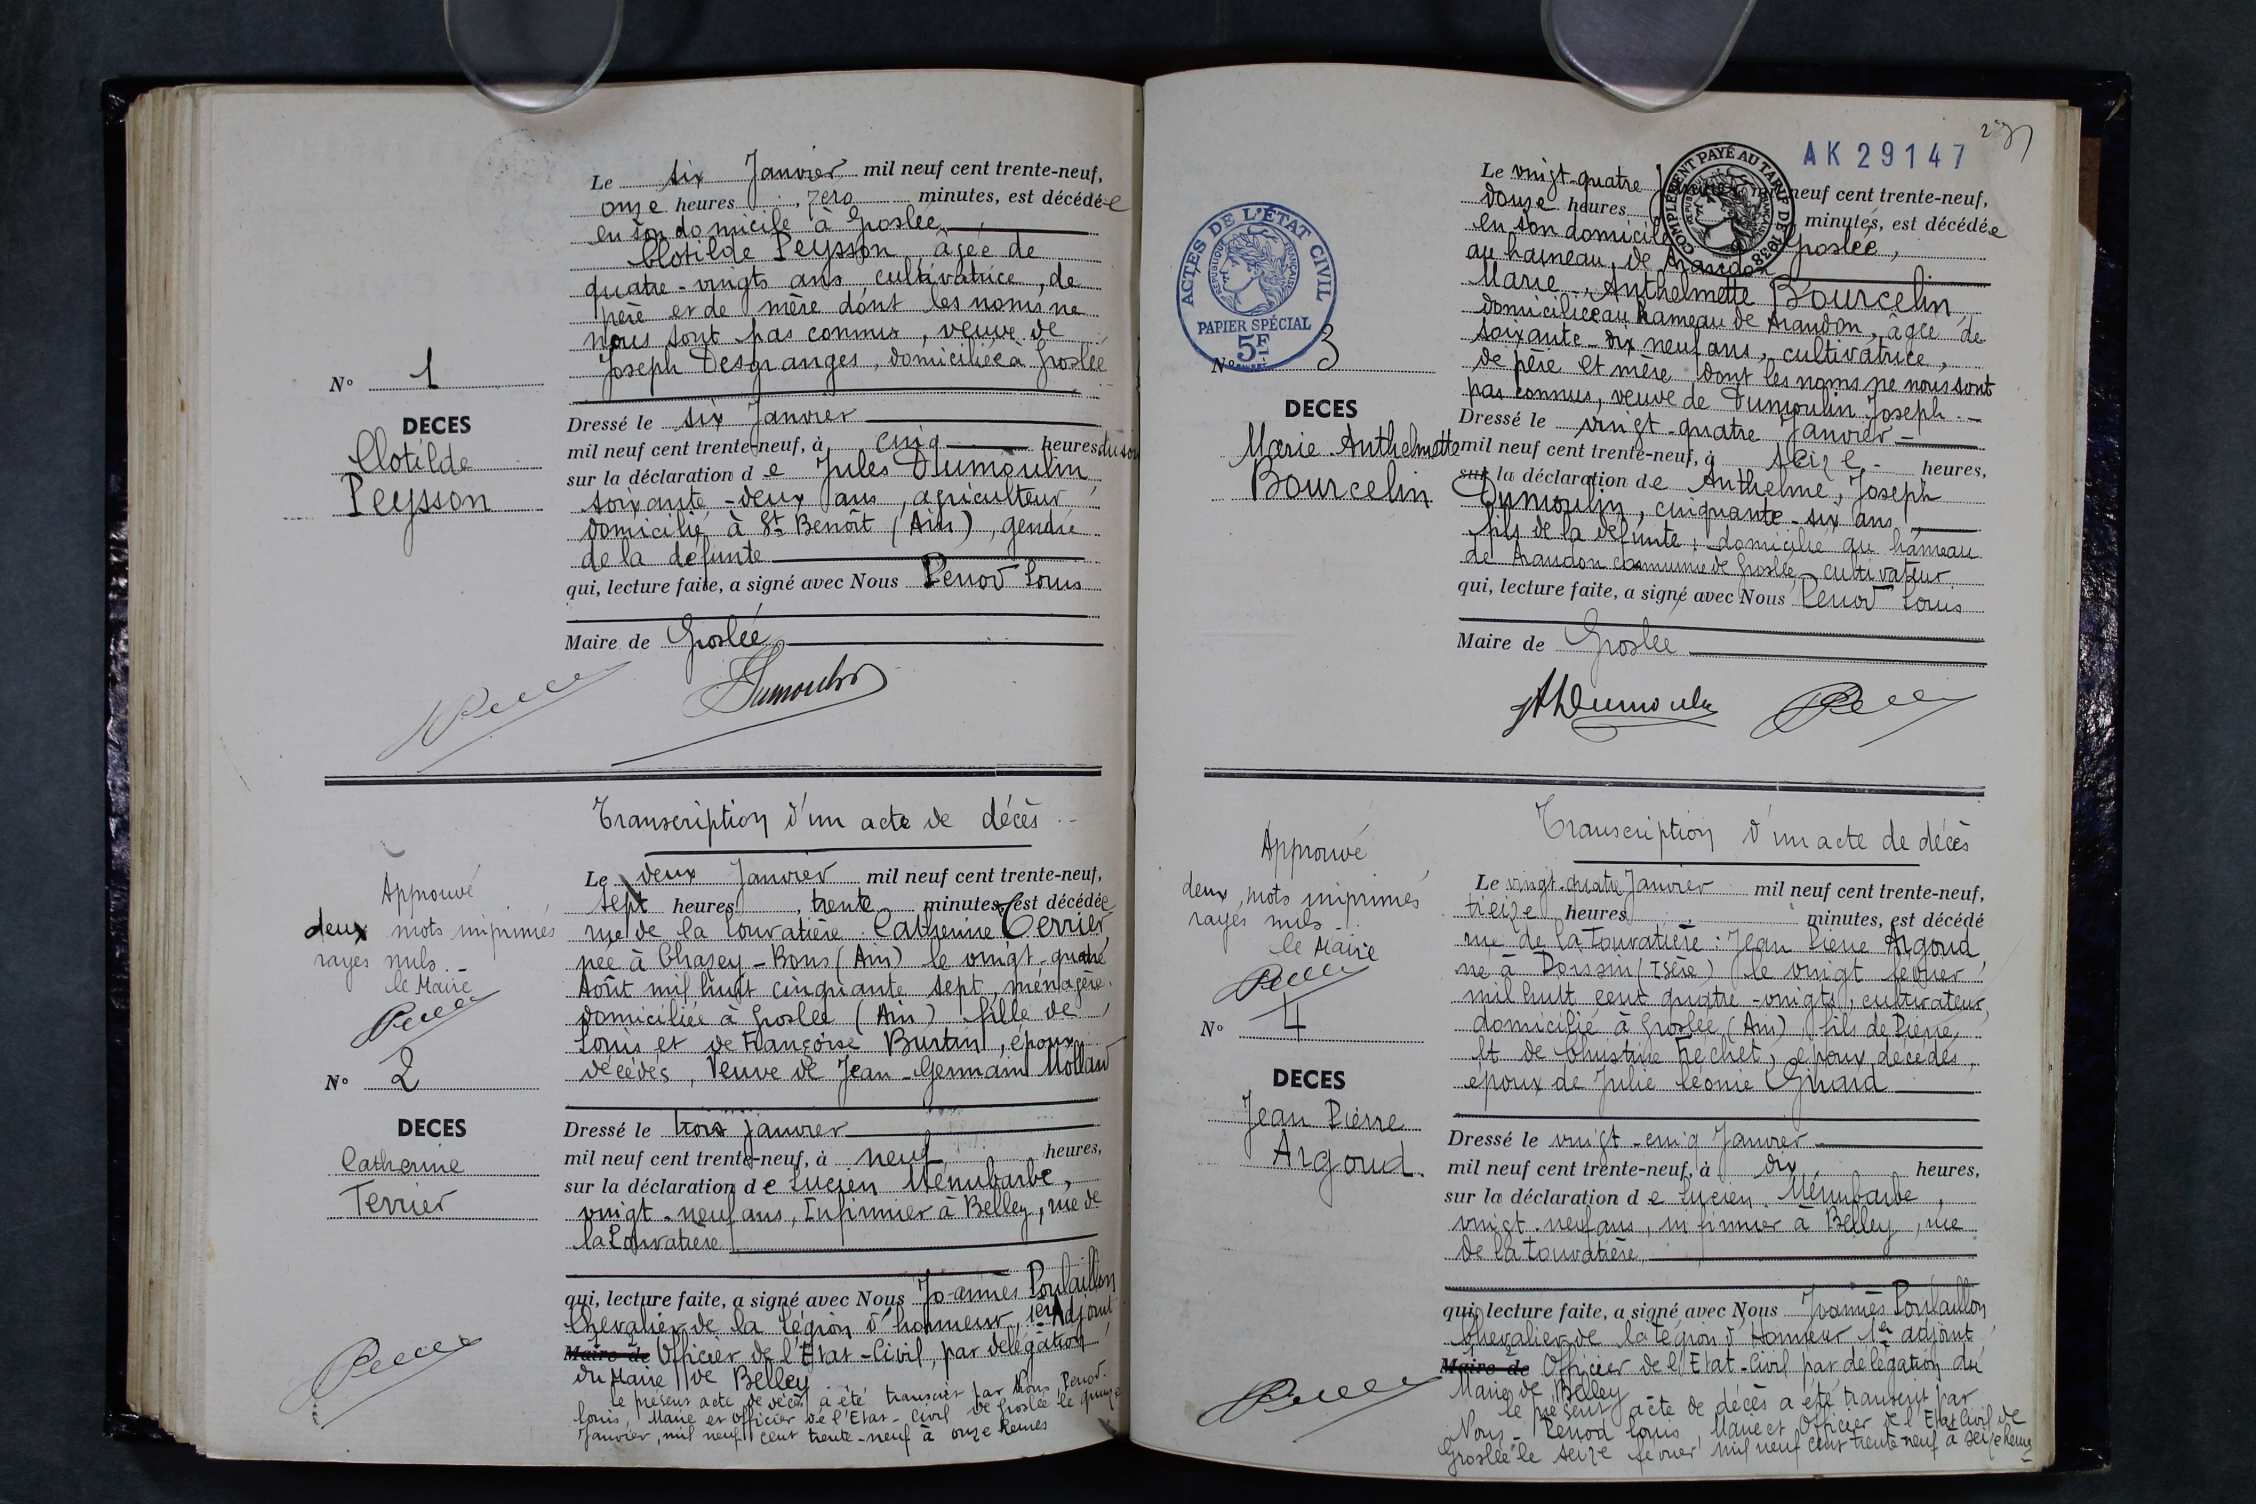 Le six Janvier mil neuf cent trente-neuf,
onze heures, zéro minutes, est décédée
en son domicile à Groslée
Clotilde Peysson, âgée de
quatre-vingts ans, cultivatrice, de
père et de mère dont les noms ne
nous sont pas connus, veuve de
Joseph Desgranges, domiciliée à Groslée
N° 1
DECES
Clotilde
Peysson
Dressé le six Janvier
mil neuf cent trente-neuf, à cinq heures du soir
sur la déclaration de Jules Dumoulin
soixante-deux ans, agriculteur
domicilié à St Benoît (Ain), gendre
de la défunte
qui, lecture faite, a signé avec Nous Penod Louis
Maire de Groslée
Dumoulin
Transcription d'un acte de décès
Approuvé
deux mots imprimés
rayés nuls
le Maire
N° 2
DECES
Catherine
Terrier
Le deux Janvier mil neuf cent trente-neuf,
sept heures, trente minutes, est décédée
rue de la Louvatière : Catherine Terrier
née à Chazey-Bons (Ain) le vingt-quatre
Août mil huit cinquante sept, ménagère
domiciliée à Groslée (Ain) fille de
Louis et de Françoise Burtin, époux
décédés, Veuve de Jean-Germain Mollard
Dressé le trois janvier
mil neuf cent trente-neuf, à neuf heures,
sur la déclaration de Lucien Ménubarbe,
vingt-neuf ans, Infirmier à Belley, rue de
la Louvatière
qui, lecture faite, a signé avec Nous Joannès Poulaillon
Chevalier de la Légion d'honneur, 1er Adjoint
Maire de Officier de l'Etat-Civil, par délégation
du Maire de Belley
Le présent acte de décès a été transcrit par Nous Penod
Louis, Maire et officier de l'Etat-Civil de Groslée le quinze
Janvier, mil neuf cent trente-neuf à onze heures
AK 29147
COMPLÉMENT PAYÉ AU TARIF DE 1938
RÉPUBLIQUE FRANÇAISE
ACTES DE L'ÉTAT CIVIL
RÉPUBLIQUE FRANÇAISE
PAPIER SPÉCIAL
5F
N° 3
DECES
Marie-Anthelmette
Bourcelin
Le vingt-quatre neuf cent trente-neuf,
douze heures minutes, est décédée
en son domicile Groslée,
au hameau de Arandon
Marie-Anthelmette Bourcelin
domiciliée au hameau de Arandon, âgée de
soixante-dix neuf ans, cultivatrice,
de père et mère dont les noms ne nous sont
pas connus, veuve de Dumoulin Joseph.-
Dressé le vingt-quatre Janvier
mil neuf cent trente-neuf, à seize heures,
sur la déclaration de Anthelme, Joseph
Dumoulin, cinquante-six ans
fils de la défunte, domicilié au hameau
de Arandon commune de Groslée, cultivateur
qui, lecture faite, a signé avec Nous Penod Louis
Maire de Groslée
Dumoulin
Transcription d'un acte de décès
Approuvé
deux mots imprimés
rayés nuls
le Maire
N° 4
DECES
Jean Pierre
Argoud
Le vingt-quatre Janvier mil neuf cent trente-neuf,
treize heures, minutes, est décédé
rue de la Louvatière : Jean Pierre Argoud
né à Doissin (Isère) le vingt février
mil huit cent quatre-vingts, cultivateur,
domicilié à Groslée (Ain), fils de Pierre
et de Christine Frechet, époux décédés,
époux de Julie Léonie Ginard
Dressé le vingt-cinq Janvier
mil neuf cent trente-neuf, à dix heures,
sur la déclaration de Lucien Ménubarbe,
vingt-neuf ans, infirmier à Belley, rue
de la Louvatière
qui, lecture faite, a signé avec Nous Joannès Poulaillon
Chevalier de la Légion d'Honneur 1er adjoint
Maire de Officier de l'Etat-Civil par délégation du
Maire de Belley
Le présent acte de décès a été transcrit par
Nous Penod Louis, Maire et Officier de l'Etat Civil de
Groslée le seize février mil neuf cent trente neuf à seize heures